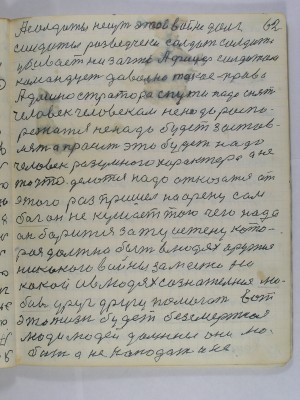 А солдаты несут этой войне долг 62
солдаты разведчики солдат солдата
убивает ни за что Афицер солдатами
командует давно такое право
Администратора спути надо снят
человек человекам не надо распо-
ряжатся не надо будет застав-
лят а просит это будет надо
человек разумного характера а не
то что делотся надо отказатся от
этого раз пришел на арену сам
бог он не кушает того чего надо
он борится за ту истену кото-
рая должна быт в людях дружно
никакого войны за место ни
какой и в людях сознателная лю-
бов друг другу помогат вот
эта жизн будет бессмертная
люди людей должны они лю-
бит а не нападат и не